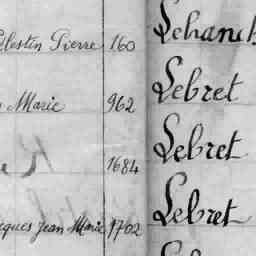 élestin Pierre 160 Lehanc
Marie 962 Lebret
1684 Lebret
cques Jean Marie 1702 Lebret